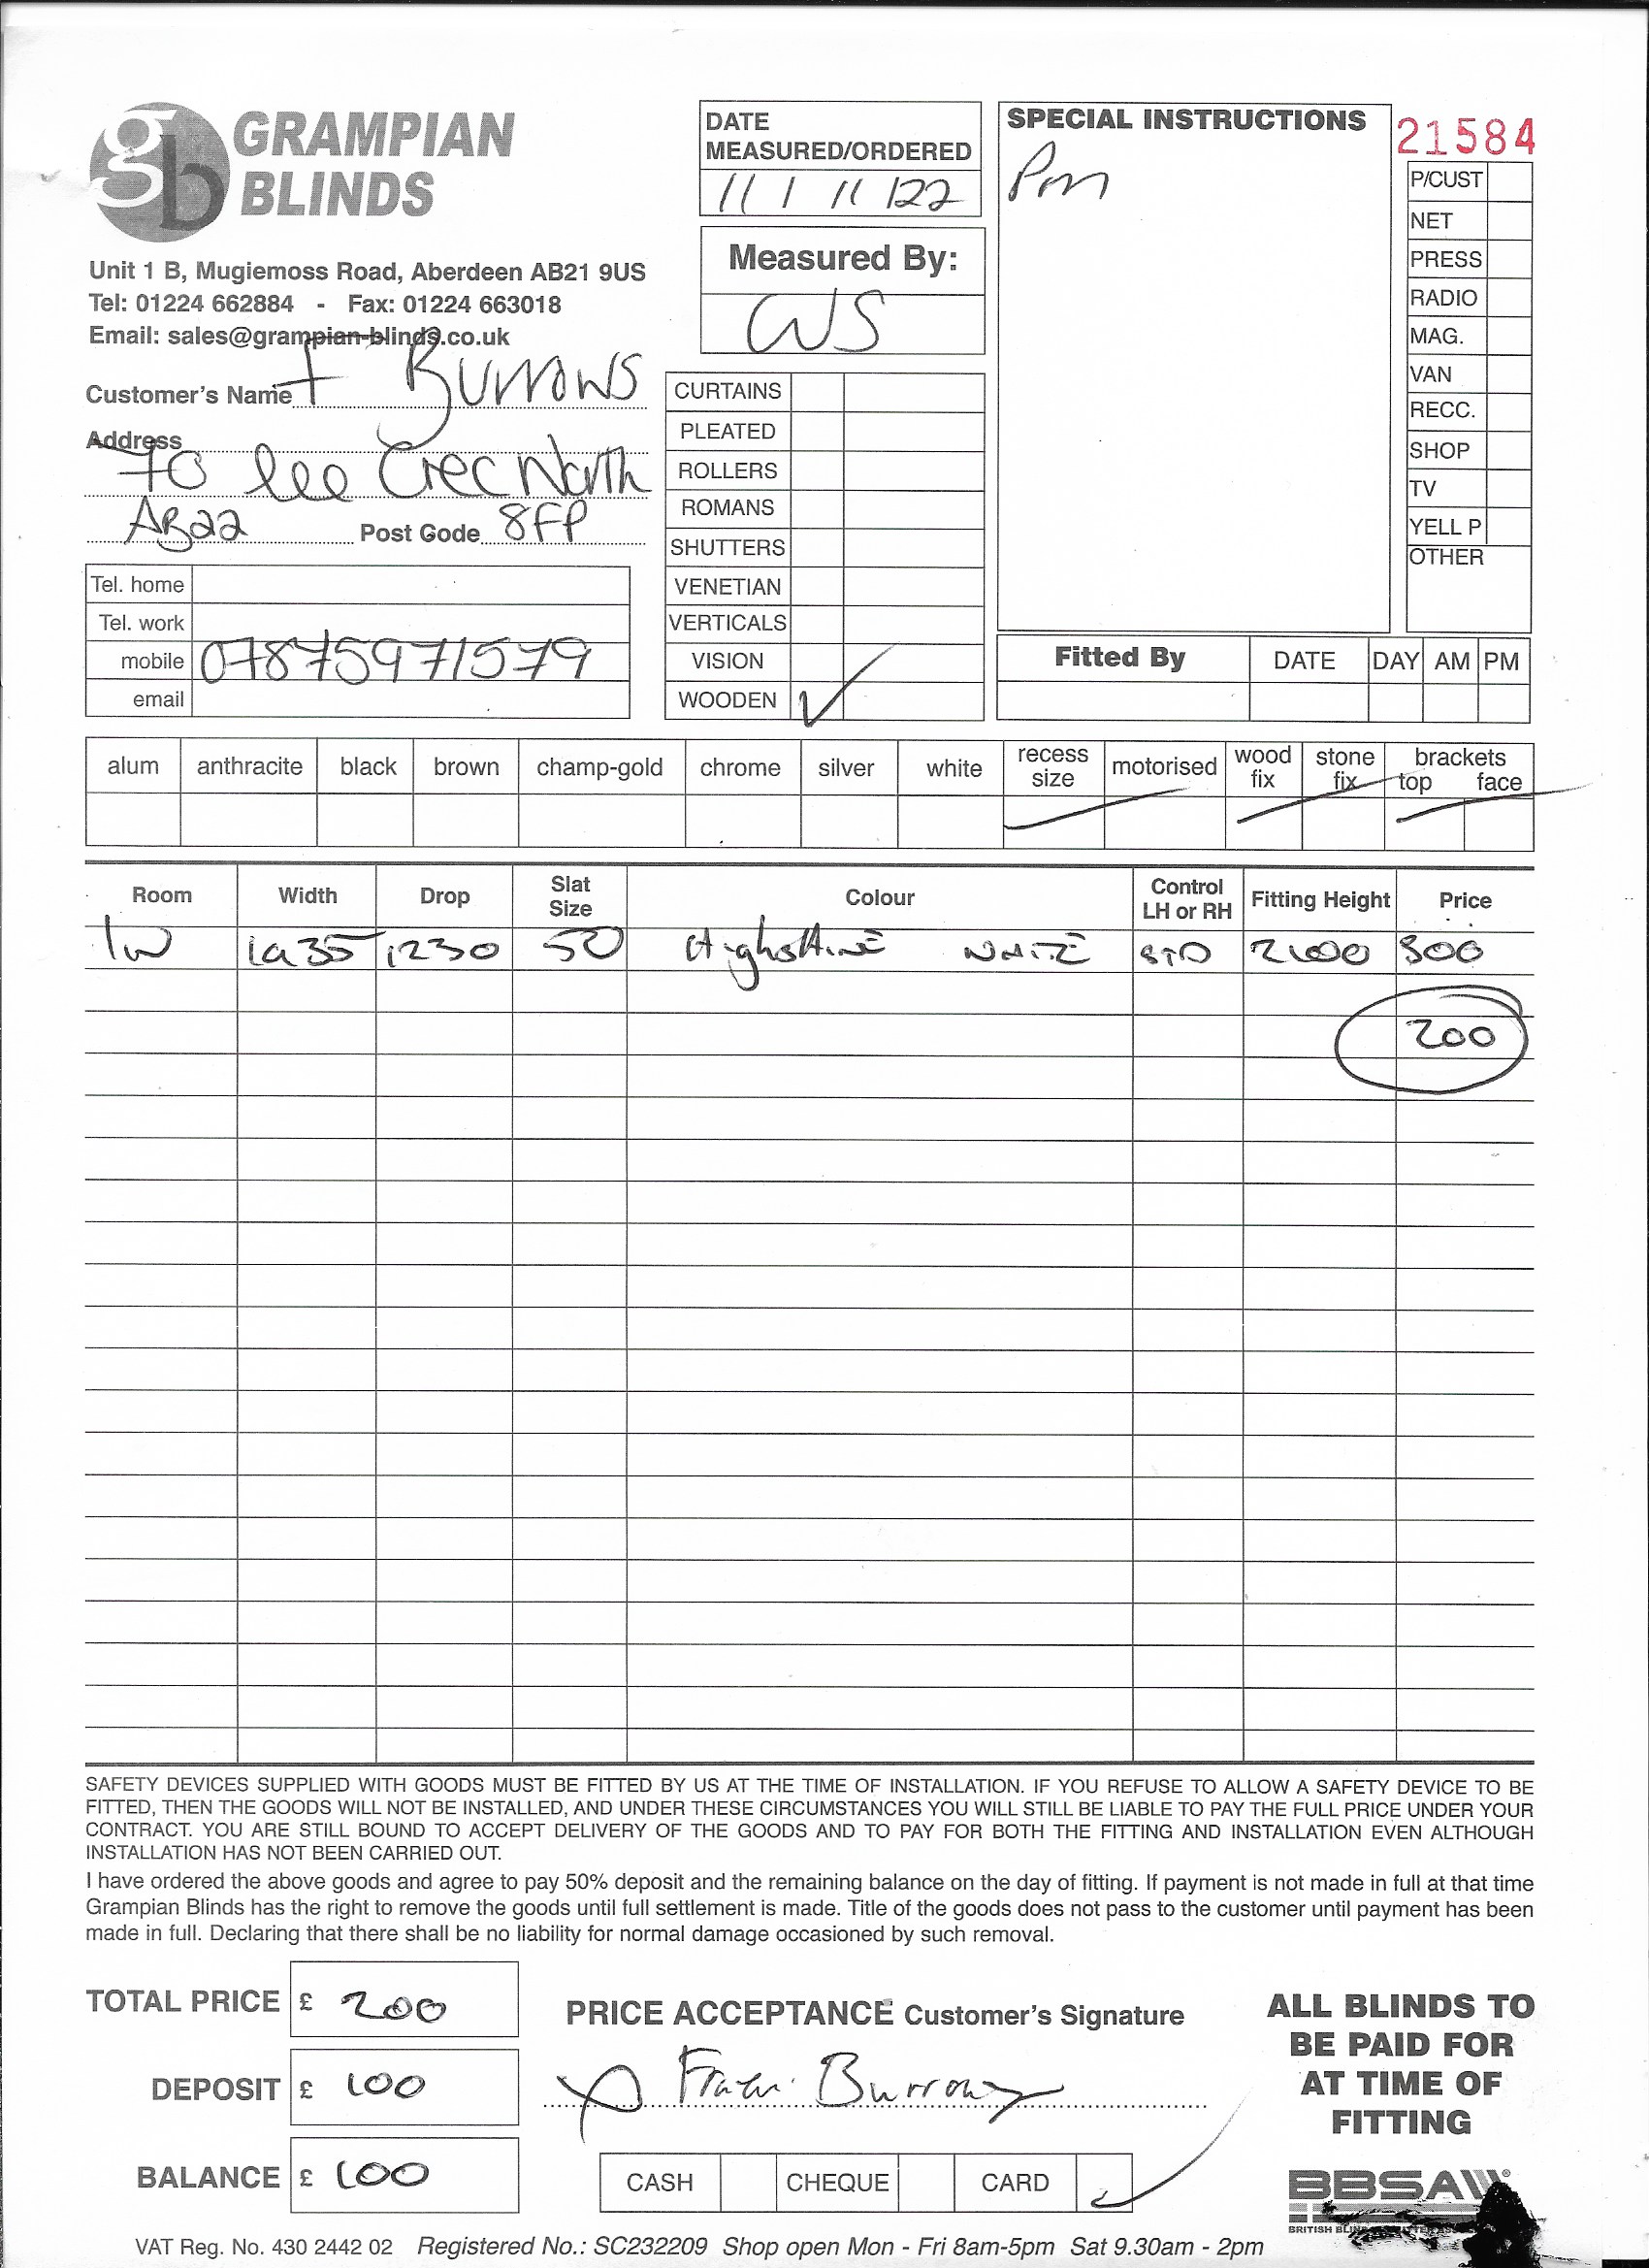 gb GRAMPIAN
BLINDS
Unit 1 B, Mugiemoss Road, Aberdeen AB21 9US
Tel: 01224 662884 - Fax: 01224 663018
Email: sales@grampian-blinds.co.uk
Customer's Name F Burrows
Address
70 lee Crec North
AB22 Post Code 8FP
Tel. home
Tel. work
mobile 07875971579
email
DATE
MEASURED/ORDERED
11 / 11 / 22
Measured By:
WS
CURTAINS
PLEATED
ROLLERS
ROMANS
SHUTTERS
VENETIAN
VERTICALS
VISION
WOODEN ✓
SPECIAL INSTRUCTIONS
Pm
21584
P/CUST
NET
PRESS
RADIO
MAG.
VAN
RECC.
SHOP
TV
YELL P
OTHER
Fitted By DATE DAY AM PM
alum anthracite black brown champ-gold chrome silver white recess size motorised wood fix stone fix brackets top face
Room Width Drop Slat Size Colour Control LH or RH Fitting Height Price
1W 1235 1230 50 HighShine WHITE STD 2100 300
200
SAFETY DEVICES SUPPLIED WITH GOODS MUST BE FITTED BY US AT THE TIME OF INSTALLATION. IF YOU REFUSE TO ALLOW A SAFETY DEVICE TO BE
FITTED, THEN THE GOODS WILL NOT BE INSTALLED, AND UNDER THESE CIRCUMSTANCES YOU WILL STILL BE LIABLE TO PAY THE FULL PRICE UNDER YOUR
CONTRACT. YOU ARE STILL BOUND TO ACCEPT DELIVERY OF THE GOODS AND TO PAY FOR BOTH THE FITTING AND INSTALLATION EVEN ALTHOUGH
INSTALLATION HAS NOT BEEN CARRIED OUT.
I have ordered the above goods and agree to pay 50% deposit and the remaining balance on the day of fitting. If payment is not made in full at that time
Grampian Blinds has the right to remove the goods until full settlement is made. Title of the goods does not pass to the customer until payment has been
made in full. Declaring that there shall be no liability for normal damage occasioned by such removal.
TOTAL PRICE £ 200
DEPOSIT £ 100
BALANCE £ 100
PRICE ACCEPTANCE Customer's Signature
Burrows
CASH CHEQUE CARD ✓
ALL BLINDS TO
BE PAID FOR
AT TIME OF
FITTING
BBSA
VAT Reg. No. 430 2442 02 Registered No.: SC232209 Shop open Mon - Fri 8am-5pm Sat 9.30am - 2pm